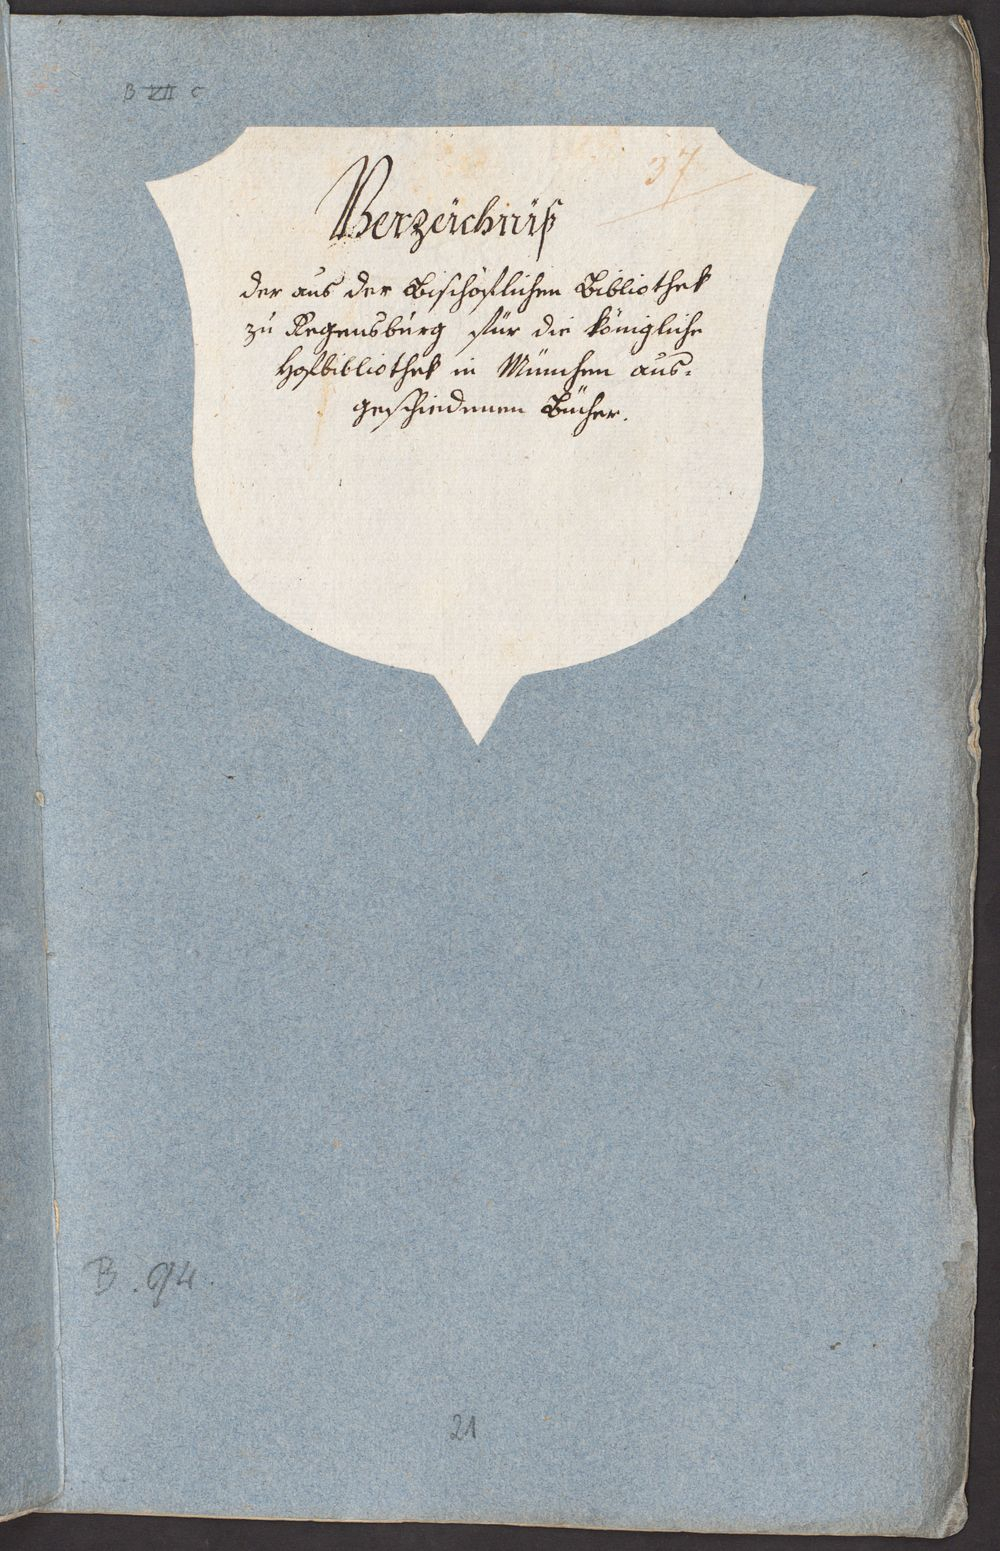 B VII c
37
Verzeichniß
der aus der Bischöflichen Bibliothek
zu Regensburg für die königliche
Hofbibliothek in München aus-
geschiedenen Bücher.
B. 94.
21